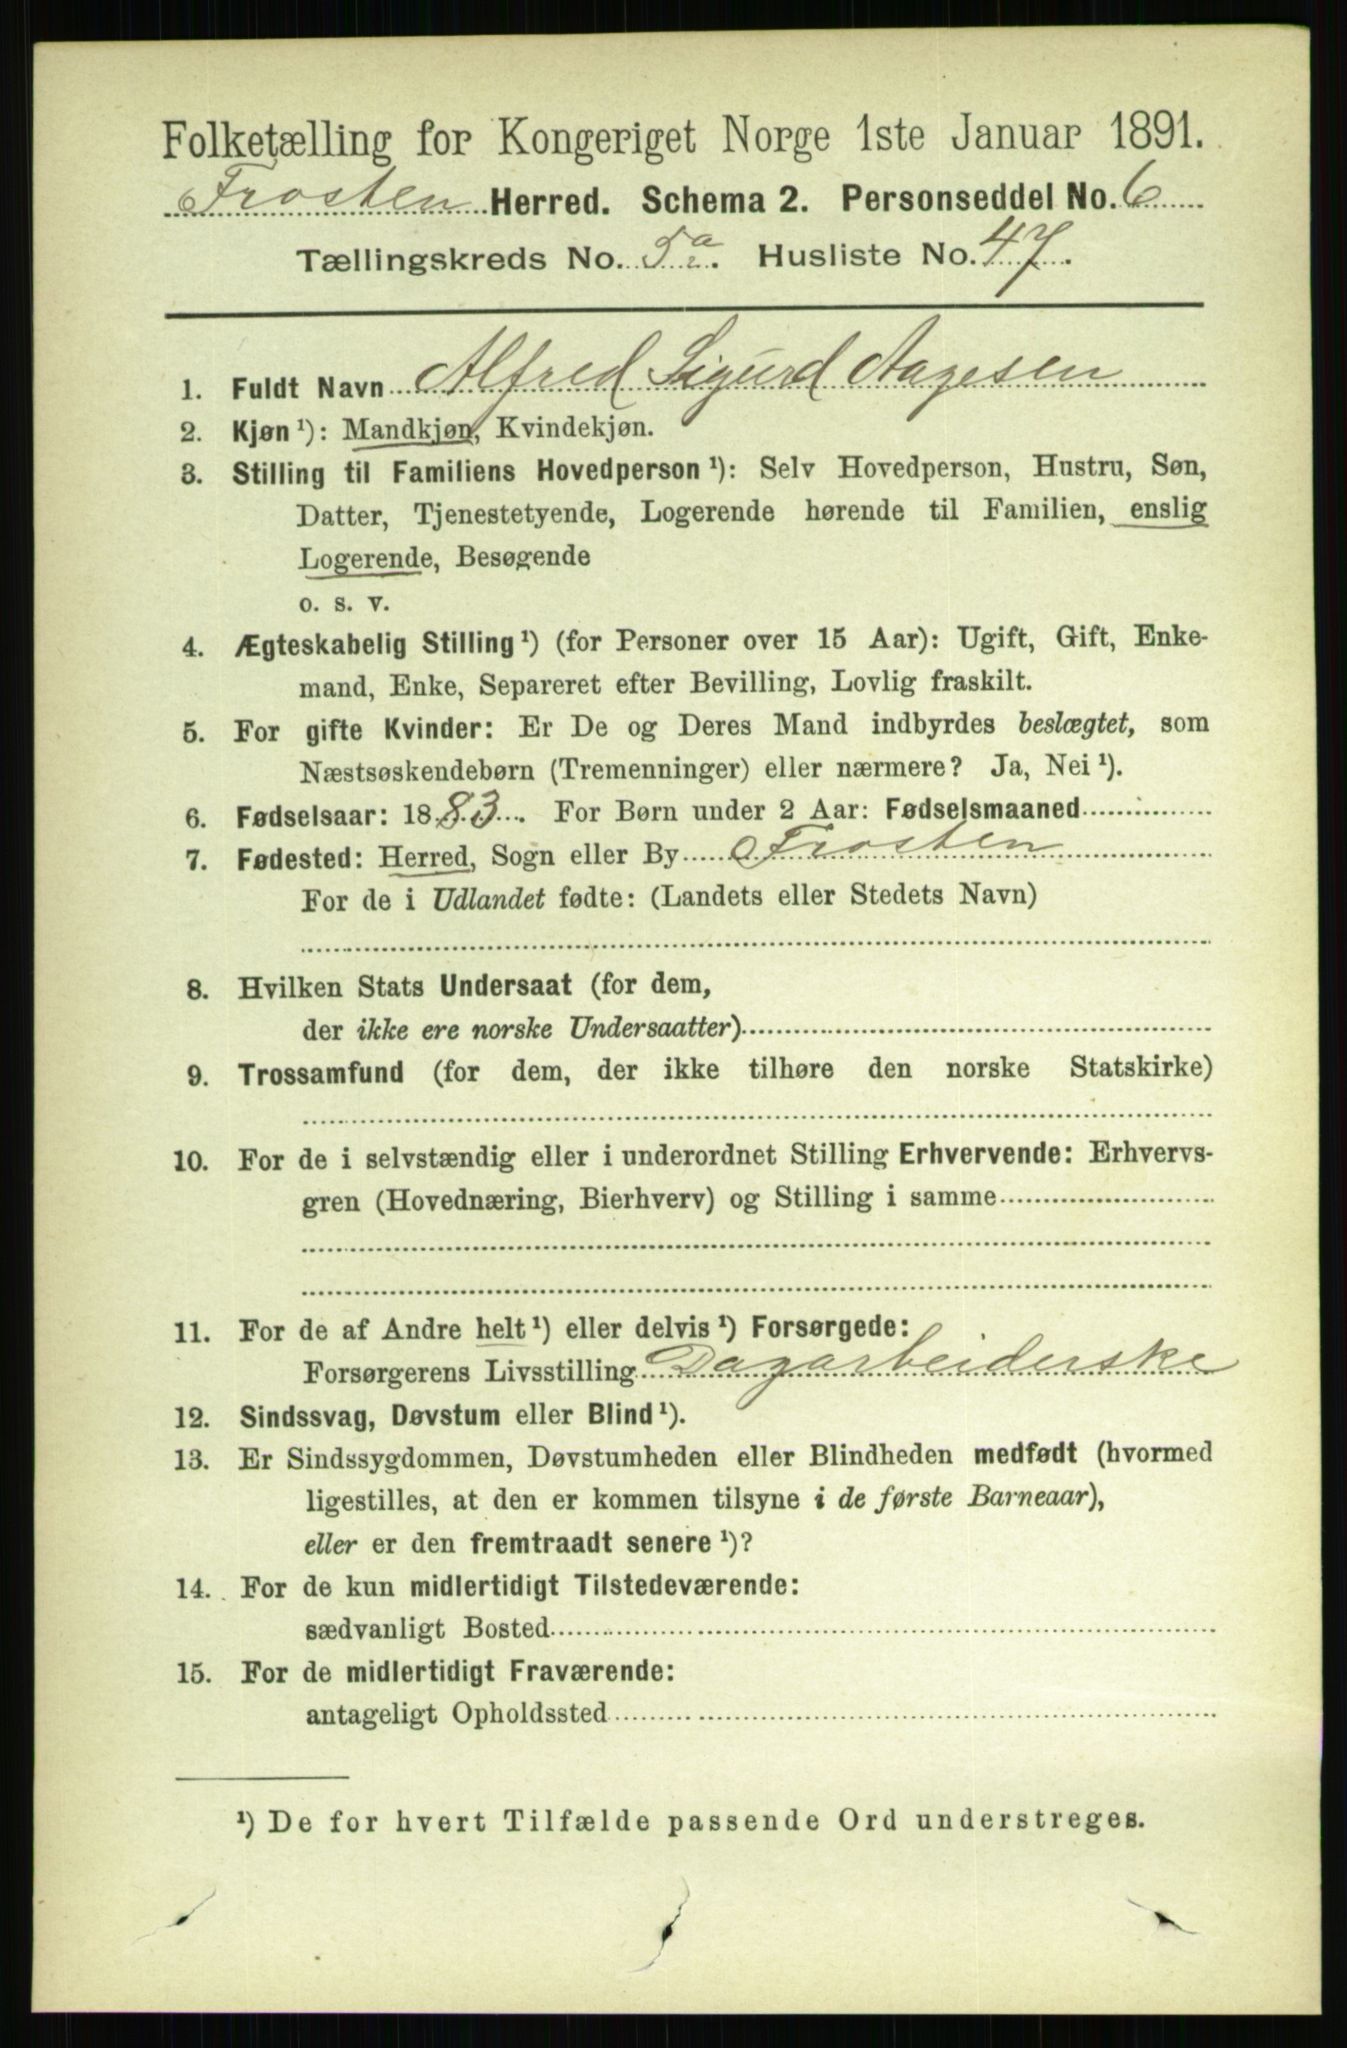 Folketælling for Kongeriget Norge 1ste Januar 1891.
Frosten Herred. Schema 2. Personseddel No. 6
Tællingskreds No. 5a. Husliste No. 47.
1. Fuldt Navn Alfred Sigurd Aagesen
2. Kjøn ¹): Mandkjøn, Kvindekjøn.
3. Stilling til Familiens Hovedperson ¹): Selv Hovedperson, Hustru, Søn,
Datter, Tjenestetyende, Logerende hørende til Familien, enslig
Logerende, Besøgende
o. s. v.
4. Ægteskabelig Stilling ¹) (for Personer over 15 Aar): Ugift, Gift, Enke-
mand, Enke, Separeret efter Bevilling, Lovlig fraskilt.
5. For gifte Kvinder: Er De og Deres Mand indbyrdes beslægtet, som
Næstsøskendebørn (Tremenninger) eller nærmere? Ja, Nei ¹).
6. Fødselsaar: 1883. For Børn under 2 Aar: Fødselsmaaned
7. Fødested: Herred, Sogn eller By Frosten
For de i Udlandet fødte: (Landets eller Stedets Navn)
8. Hvilken Stats Undersaat (for dem,
der ikke ere norske Undersaatter)
9. Trossamfund (for dem, der ikke tilhøre den norske Statskirke)
10. For de i selvstændig eller i underordnet Stilling Erhvervende: Erhvervs-
gren (Hovednæring, Bierhverv) og Stilling i samme
11. For de af Andre helt ¹) eller delvis ¹) Forsørgede:
Forsørgerens Livsstilling Dagarbeiderske
12. Sindssvag, Døvstum eller Blind ¹).
13. Er Sindssygdommen, Døvstumheden eller Blindheden medfødt (hvormed
ligestilles, at den er kommen tilsyne i de første Barneaar),
eller er den fremtraadt senere ¹)?
14. For de kun midlertidigt Tilstedeværende:
sædvanligt Bosted
15. For de midlertidigt Fraværende:
antageligt Opholdssted
¹) De for hvert Tilfælde passende Ord understreges.